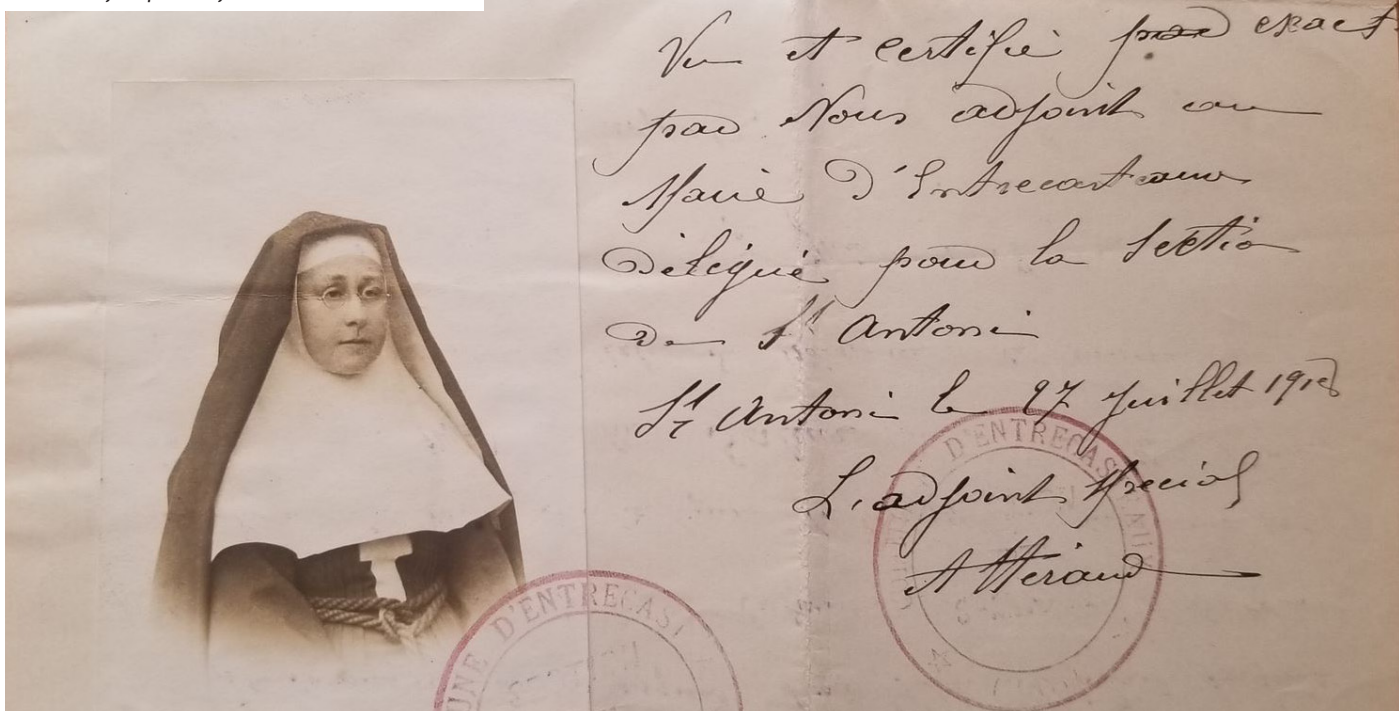 Vu et certifié pour exact
par Nous adjoint au
Maire d'Entrecasteaux
Délégué pour la Section
De St Antonin
St Antonin le 27 Juillet 1918
L'adjoint Special
A Héraud
D'ENTRECAST
UNE D'ENTRECAST